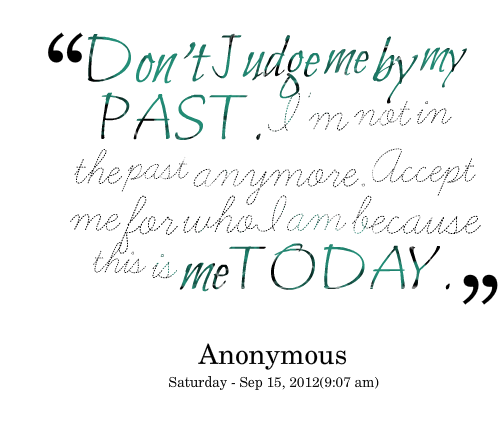 “Don't Judge me by my
PAST. I'm not in
the past anymore. Accept
me for who I am because
this is me TODAY.”
Anonymous
Saturday - Sep 15, 2012(9:07 am)